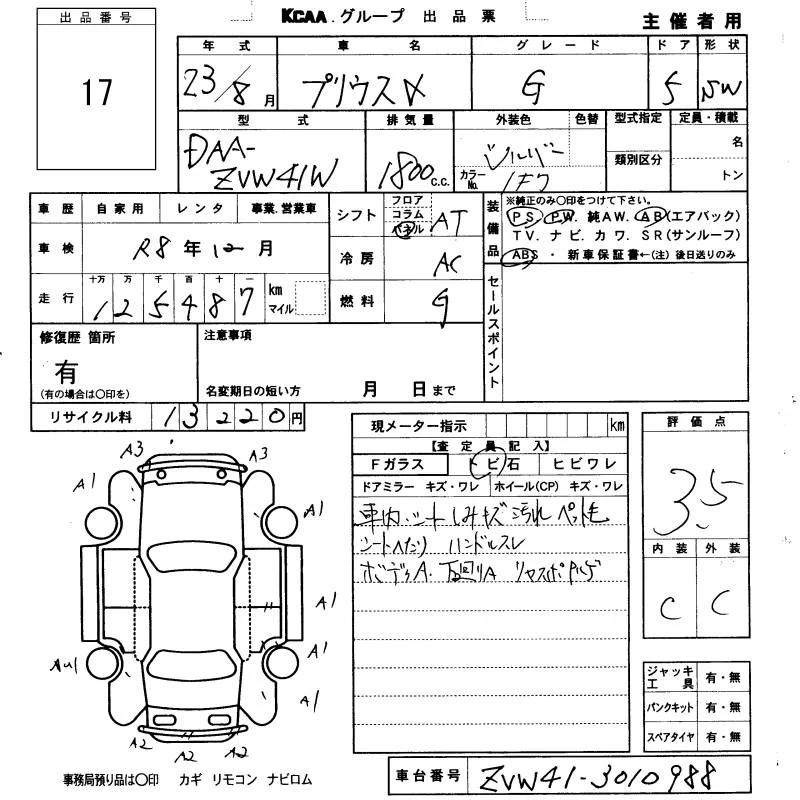 KCAA.グループ 出品票
主催者用
出品番号
17
年式 車名 グレード ドア 形状
23/8月 プリウスα G 5 SW
型式 排気量 外装色 色替 型式指定 定員・積載
DAA-
ZVW41W
1800 c.c.
シルバー
カラーNo. 1F7
類別区分
名
トン
車歴 自家用 レンタ 事業.営業車
車検 R8年12月
走行 十万 万 千 百 十 一
125487 km
マイル
シフト フロア
コラム
パネル AT
冷房 AC
燃料 G
装備品
※純正のみ○印をつけて下さい。
PS. PW. 純AW. AB(エアバック)
TV. ナビ. カワ. SR(サンルーフ)
ABS ・ 新車保証書←(注) 後日送りのみ
セールスポイント
修復歴 箇所
有
(有の場合は○印を)
注意事項
名変期日の短い方 月 日まで
リサイクル料 13220円
現メーター指示 km
【査定員記入】
Fガラス トビ石 ヒビワレ
ドアミラー キズ・ワレ ホイール(CP) キズ・ワレ
車内.シートしみキズ汚れ ペット毛
シートへたり ハンドルスレ
ボディA. 下回りA
評価点
3.5
内装 外装
C C
ジャッキ
工具 有・無
パンクキット 有・無
スペアタイヤ 有・無
A3 A3
A1 A1
A1
A1
AU1 A1
A2 A2 A2
事務局預り品は○印 カギ リモコン ナビロム
車台番号 ZVW41-3010988